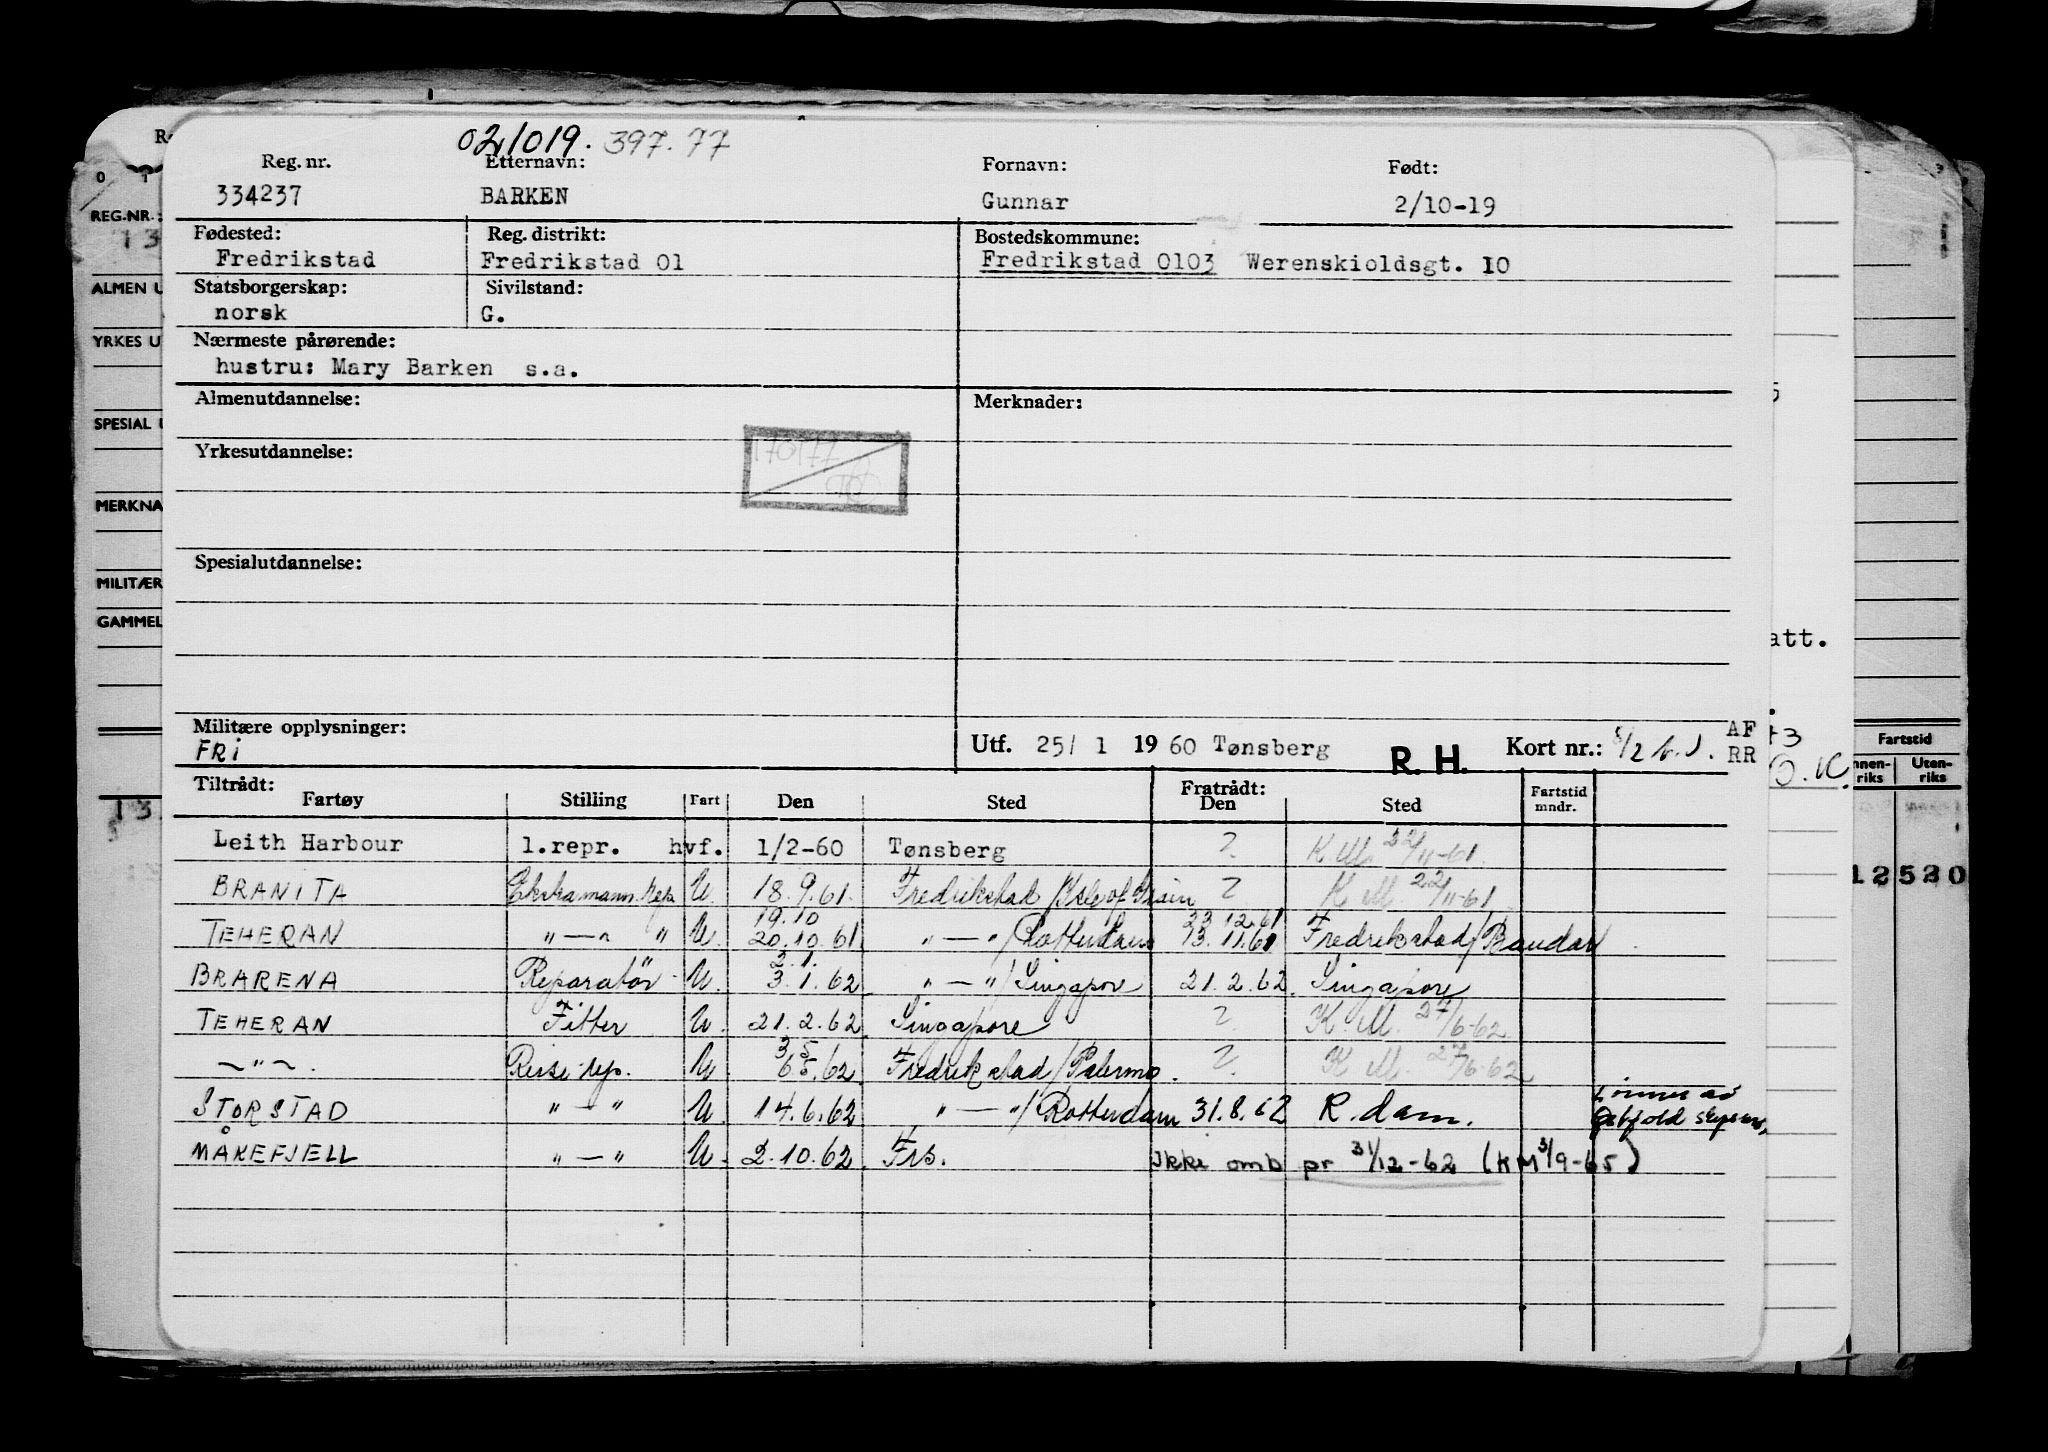 021019. 397.77
Reg. nr. Etternavn: Fornavn: Født:
334237 BARKEN Gunnar 2/10-19
Fødested: Reg. distrikt: Bostedskommune:
Fredrikstad Fredrikstad 01 Fredrikstad 0103 Werenskioldsgt. 10
Statsborgerskap: Sivilstand:
norsk G.
Nærmeste pårørende:
hustru: Mary Barken s.a.
Almenutdannelse: Merknader:
Yrkesutdannelse:
170177
Spesialutdannelse:
Militære opplysninger:
FRI
Utf. 25/ 1 1960 Tønsberg R. H. Kort nr.: AF RR
Tiltrådt: Fratrådt:
Fartøy Stilling Fart Den Sted Den Sted Fartstid mndr.
Leith Harbour 1.repr. hvf. 1/2-60 Tønsberg ? K M. 22/11-61
BRANITA Ekstramann rep. U. 18.9.61. Fredrikstad / Isle of Grain ? K M. 22/11-61
19.10 23.12.61
TEHERAN " — " " U. 20.10.61 " — " / Rotterdam 13.11.61 Fredrikstad/Bandar
2.1.
BRARENA Reparatör U. 3.1.62 " — " / Singapore 21.2.62. Singapore
TEHERAN Fitter U. 21.2.62 Singapore ? K. M. 27/6-62
3 5
— " — . Reise rep. U. 6.5.62 Fredrikstad / Palermo. ? K M. 27/6-62
STORSTAD " — " U. 14.6.62 " — " / Rotterdam 31.8.62 R.dam. Lönnes av
MÅKEFJELL " — " U. 2.10.62. Frs. Ikke omb pr 31/12-62 (KM 3/9-65)
REG.NR.:
13
ALMEN U
YRKES U
SPESIAL U
MERKNA
MILITÆR
GAMMEL
13
att.
Fartstid
nnen-riks Uten-riks
12520